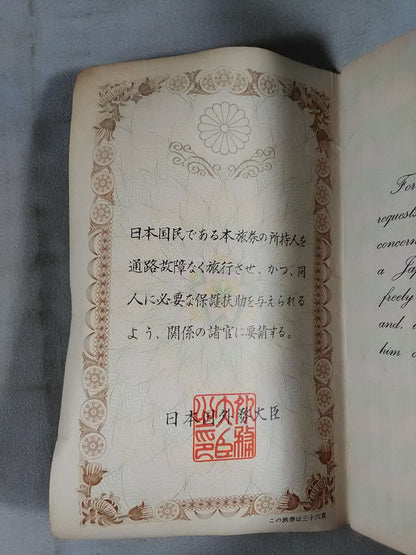 日本国民である本旅券の所持人を
通路故障なく旅行させ、かつ、同
人に必要な保護扶助を与えられる
よう、関係の諸官に要請する。
日本国外務大臣
この旅券は三十六頁
For
requests
concern
a Ja
freely
and,
him o